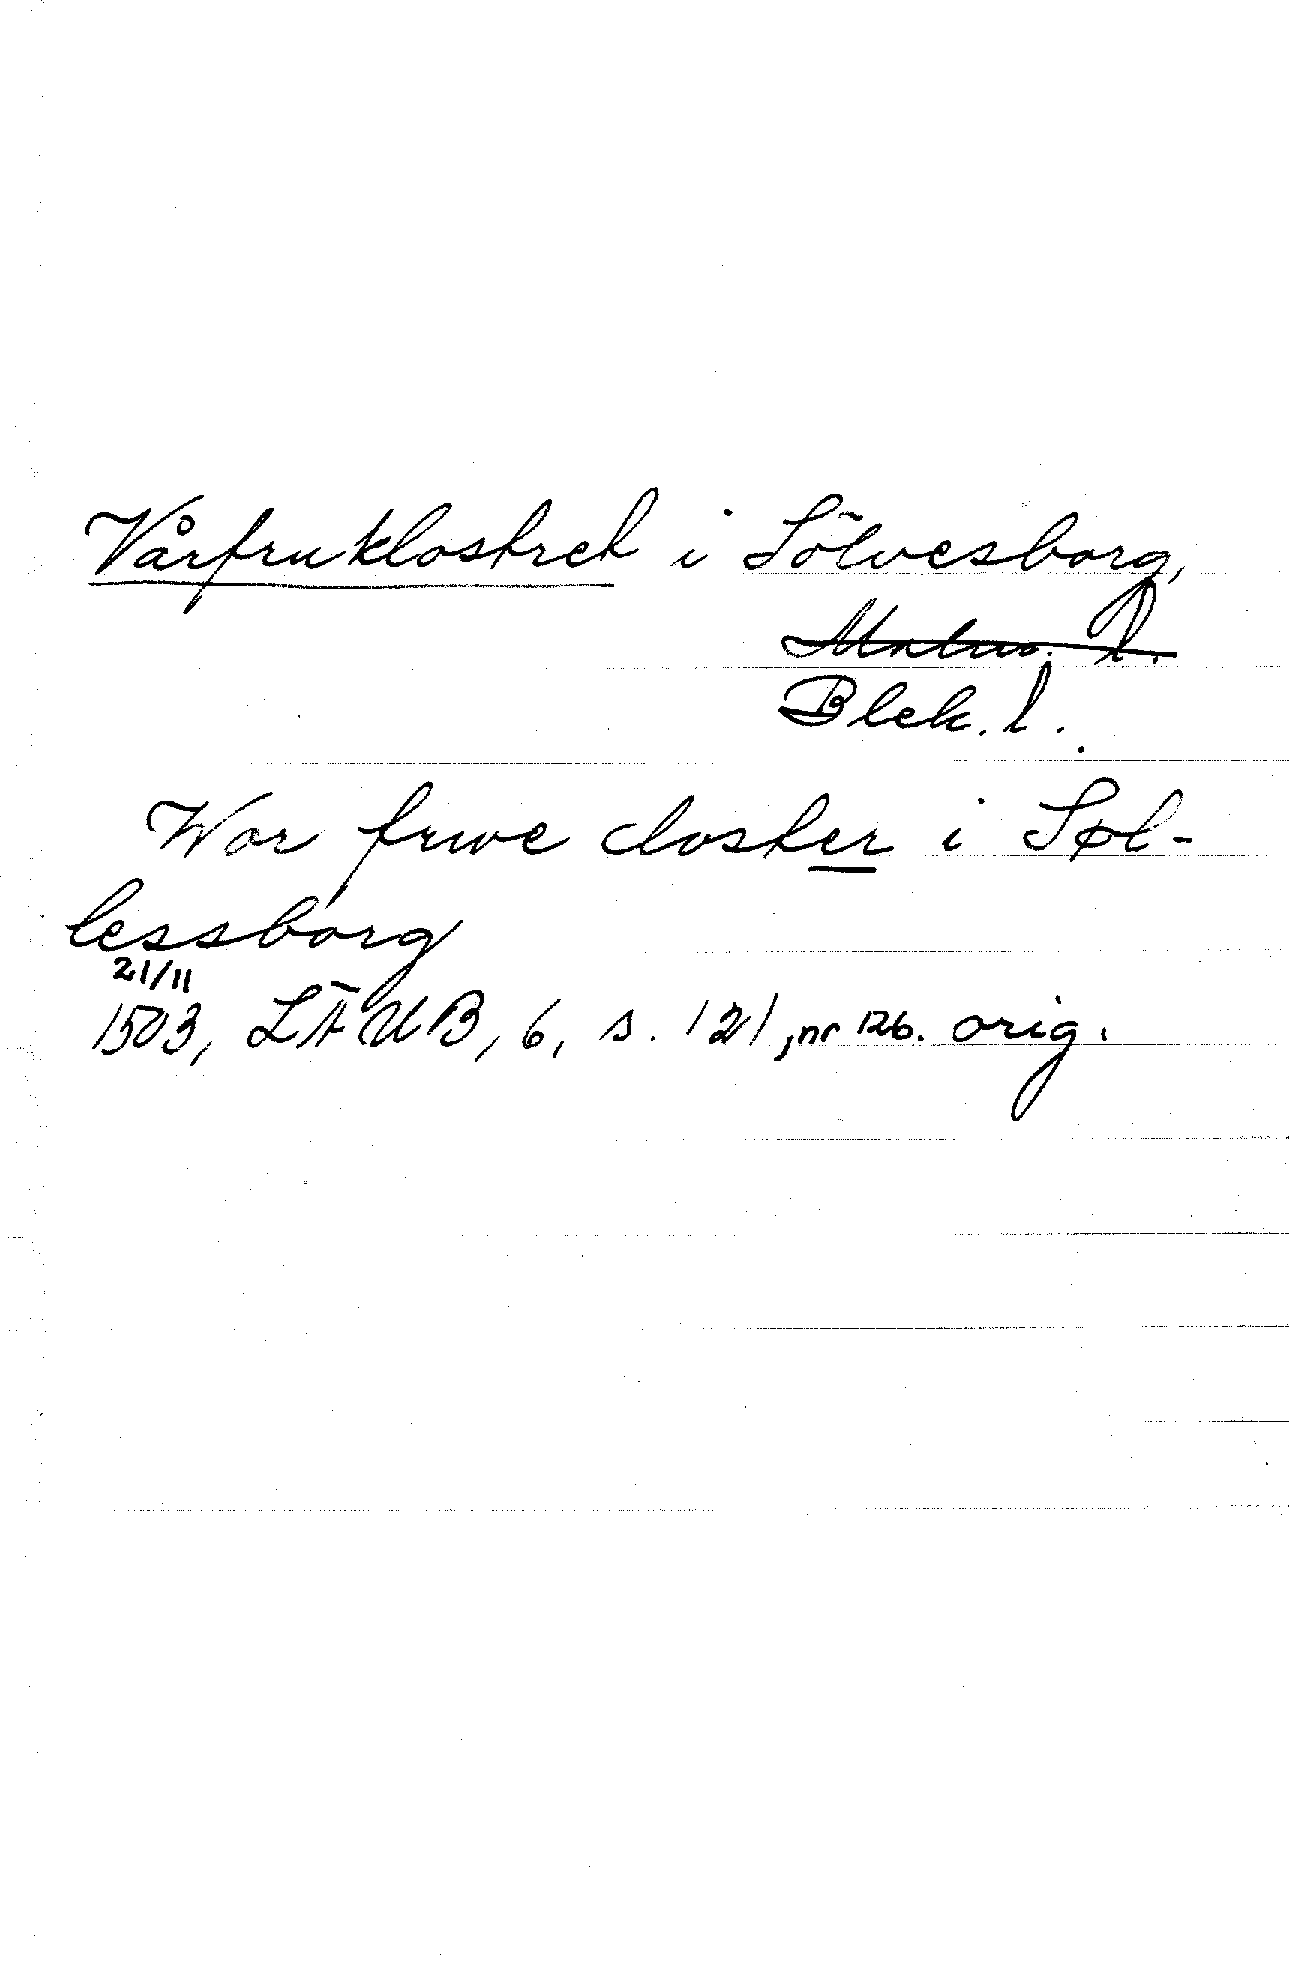 Vårfruklostret i Sölvesborg,
Malm. l.
Blek. l.
Wor frwe closter i Søl-
lessborg
21/11
1503, LÄUB, 6, s. 121, nr 126. orig.